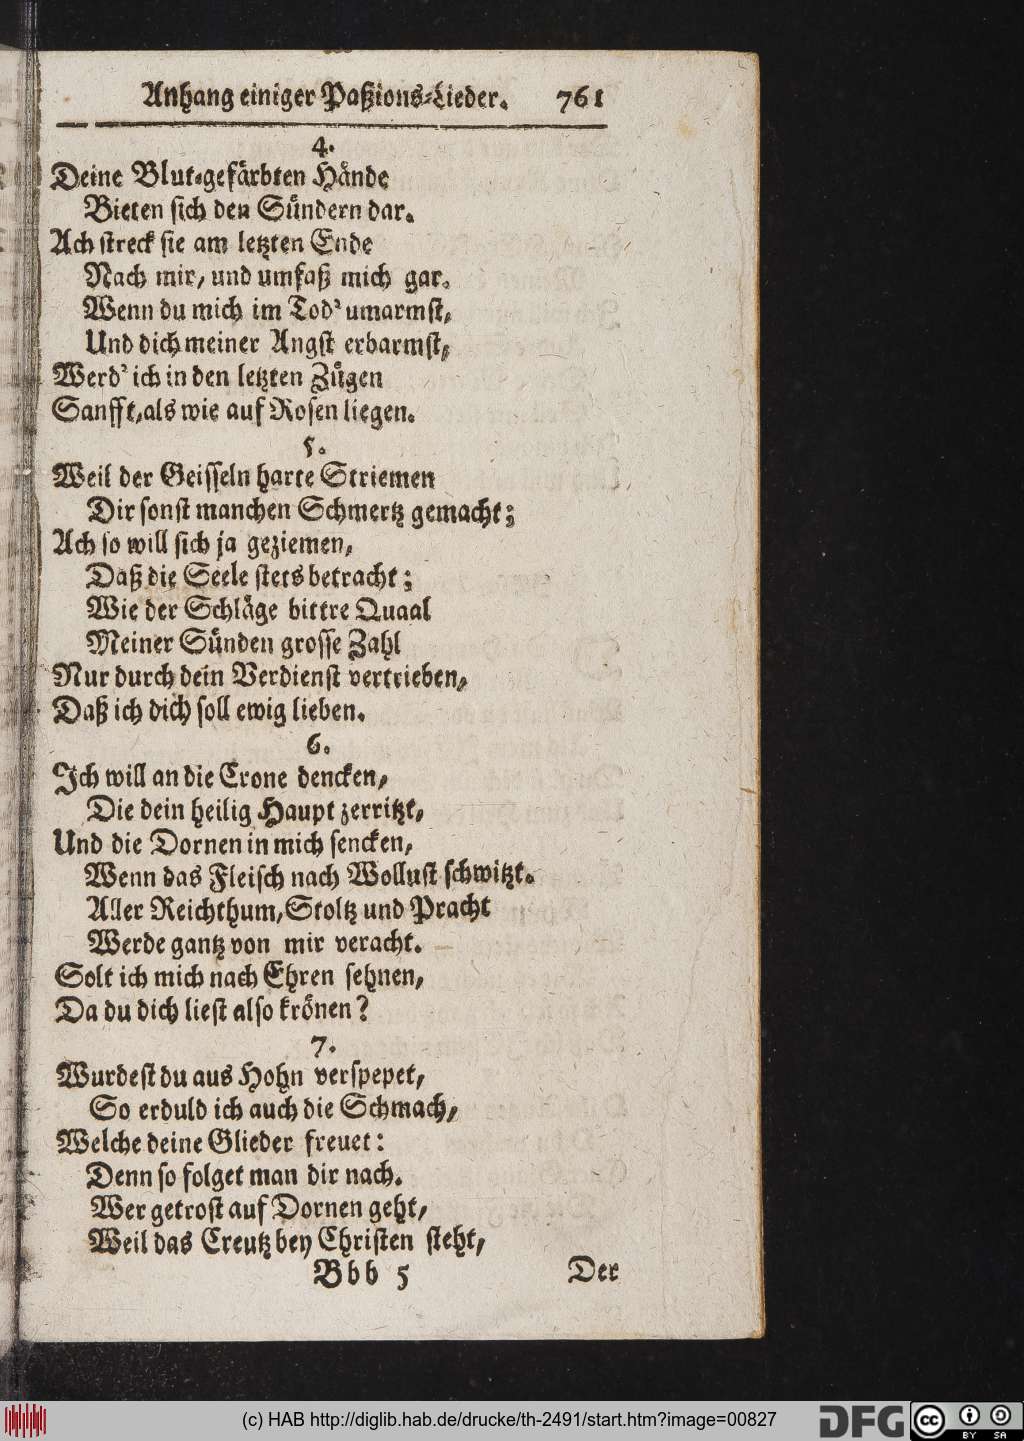 Anhang einiger Paßions-Lieder. 761
4.
Deine Blut-gefärbten Hände
Bieten sich den Sündern dar.
Ach streck sie am letzten Ende
Nach mir, und umfaß mich gar.
Wenn du mich im Tod' umarmst,
Und dich meiner Angst erbarmst,
Werd' ich in den letzten Zügen
Sanfft, als wie auf Rosen liegen.
5.
Weil der Geisseln harte Striemen
Dir sonst manchen Schmertz gemacht;
Ach so will sich ja geziemen,
Daß die Seele stets betracht;
Wie der Schläge bittre Quaal
Meiner Sünden grosse Zahl
Nur durch dein Verdienst vertrieben,
Daß ich dich soll ewig lieben.
6.
Ich will an die Crone dencken,
Die dein heilig Haupt zerritzt,
Und die Dornen in mich sencken,
Wenn das Fleisch nach Wollust schwitzt.
Aller Reichthum, Stoltz und Pracht
Werde gantz von mir veracht.
Solt ich mich nach Ehren sehnen,
Da du dich liest also krönen?
7.
Wurdest du aus Hohn verspeyet,
So erduld ich auch die Schmach,
Welche deine Glieder freuet:
Denn so folget man dir nach.
Wer getrost auf Dornen geht,
Weil das Creutz bey Christen steht,
Bbb 5 Der
(c) HAB http://diglib.hab.de/drucke/th-2491/start.htm?image=00827
DFG
cc BY SA